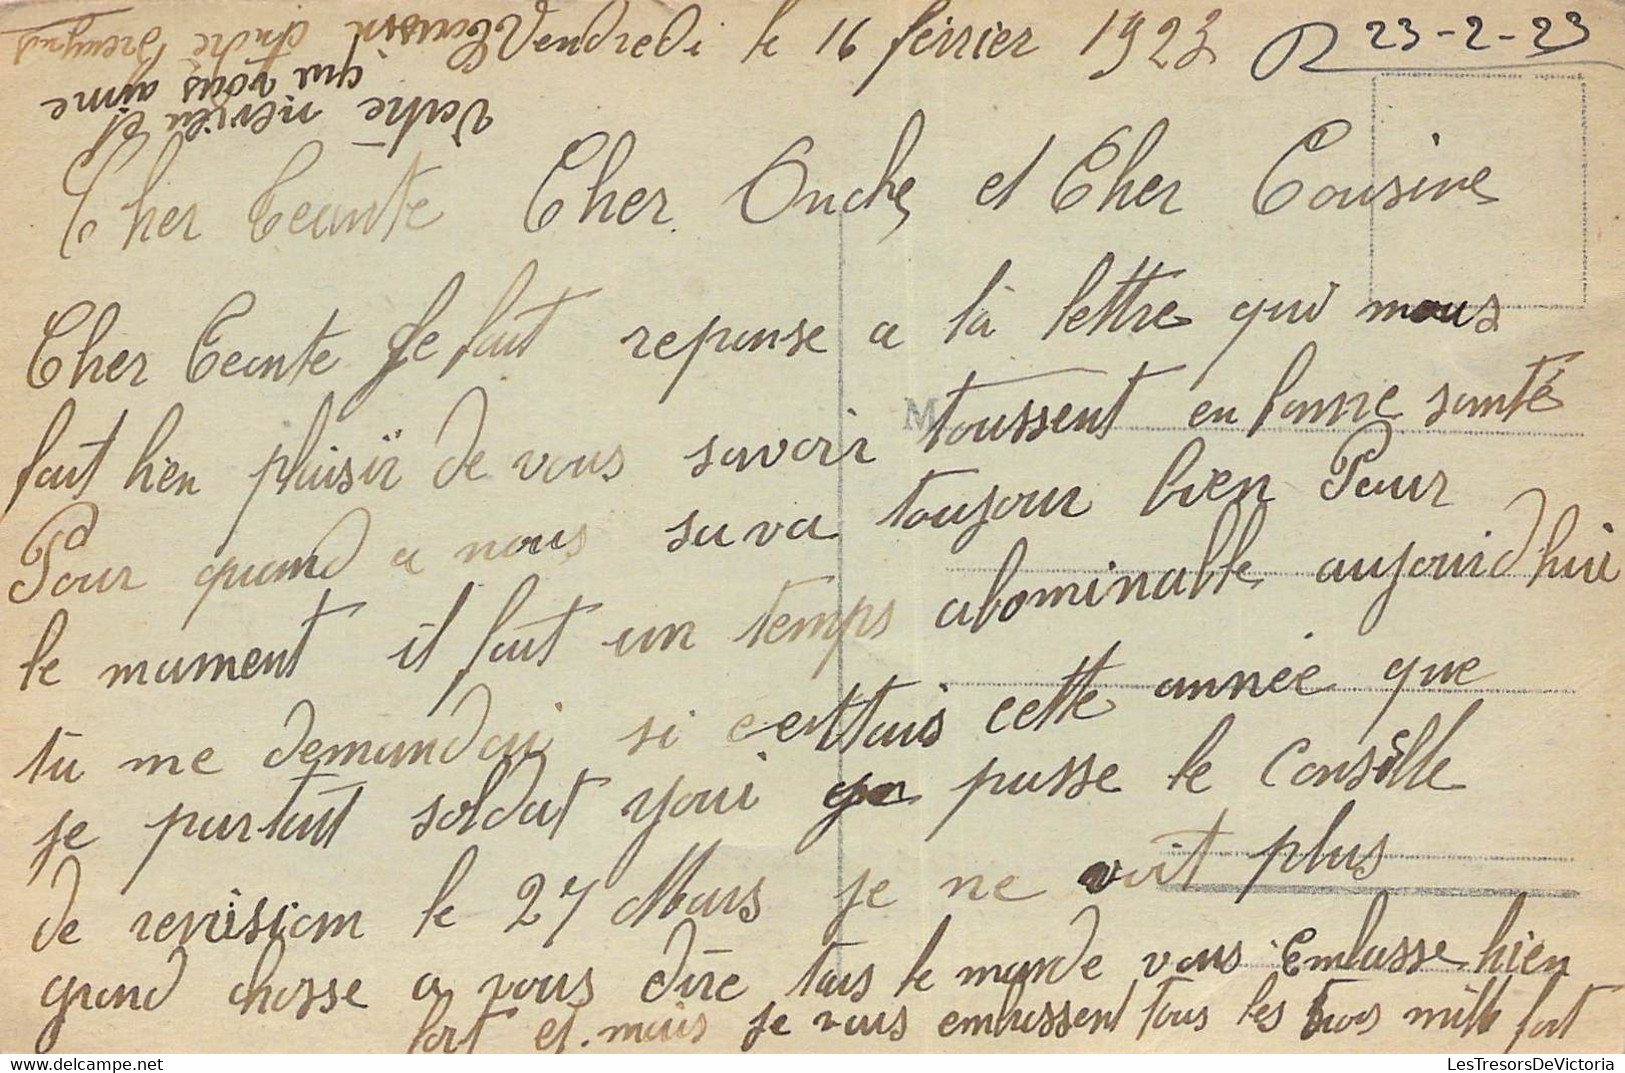 Vendredi le 16 février 1923 23-2-23
Cher Teante Cher Oncle, et Cher Cousine
Cher Teante Je fait reponse a là lettre qui nous
fait bien plaisir de vous savoir toussent en bonne santé
Pour quand a nous sava toujour bien Pour
le moment il fait un temps abominable aujourid hui
tu me demandai si cettais cette année que
je partait soldat youi passe le Consille
de revision le 27 Mars je ne voit plus
grand chosse a vous dire tous le monde vous embrasse bien
fort et mois je vous embrassent tous les trois mille fort
Votre neveu et
qui vous aime
Cousin André
M
LesTresorsDeVictoria